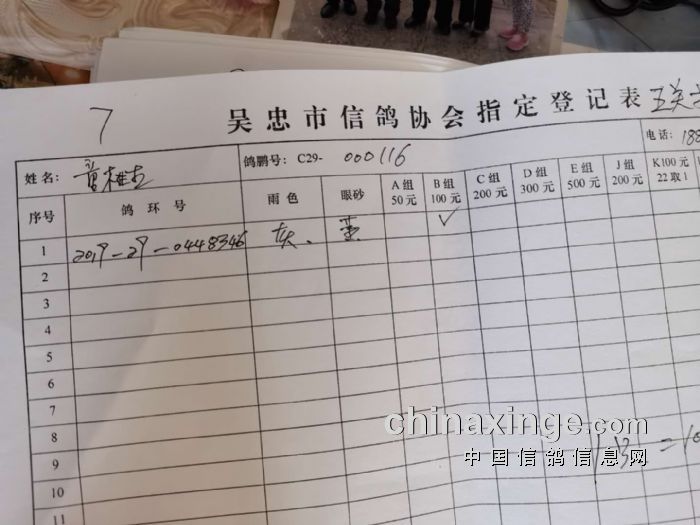 7
吴忠市信鸽协会指定登记表
姓名： 鸽鹏号：C29- 000116 电话：188
序号 鸽环号 雨色 眼砂 A组 50元 B组 100元 C组 200元 D组 300元 E组 500元 J组 200元 K100元 22取1
1 2019-29-0448346 灰 ✓
2
3
4
5
6
7
8
9
10
11
chinaxinge.com
中国信鸽信息网